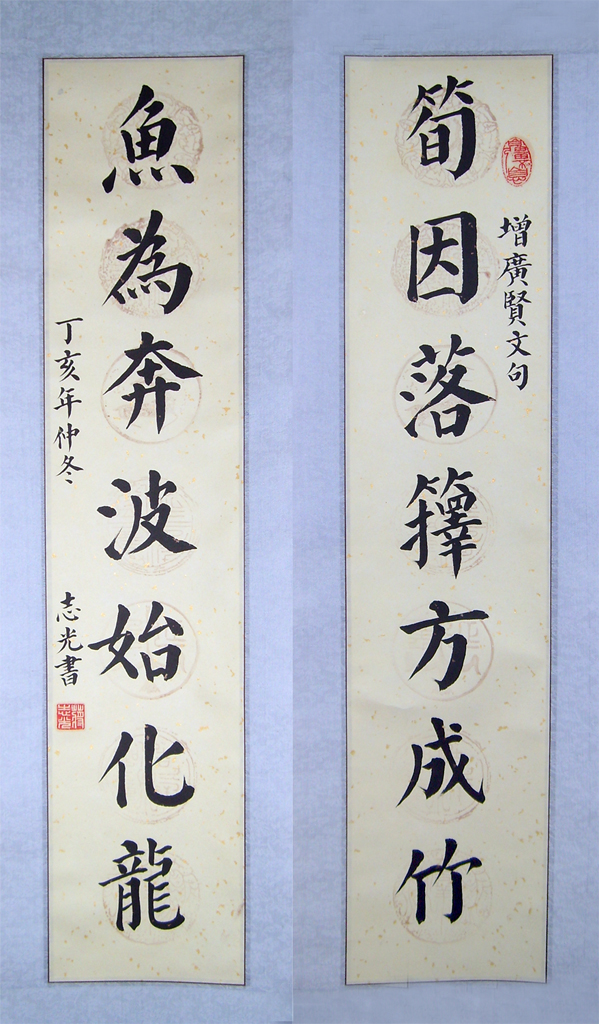 增廣賢文句
筍因落籜方成竹
魚為奔波始化龍
丁亥年仲冬 志光書